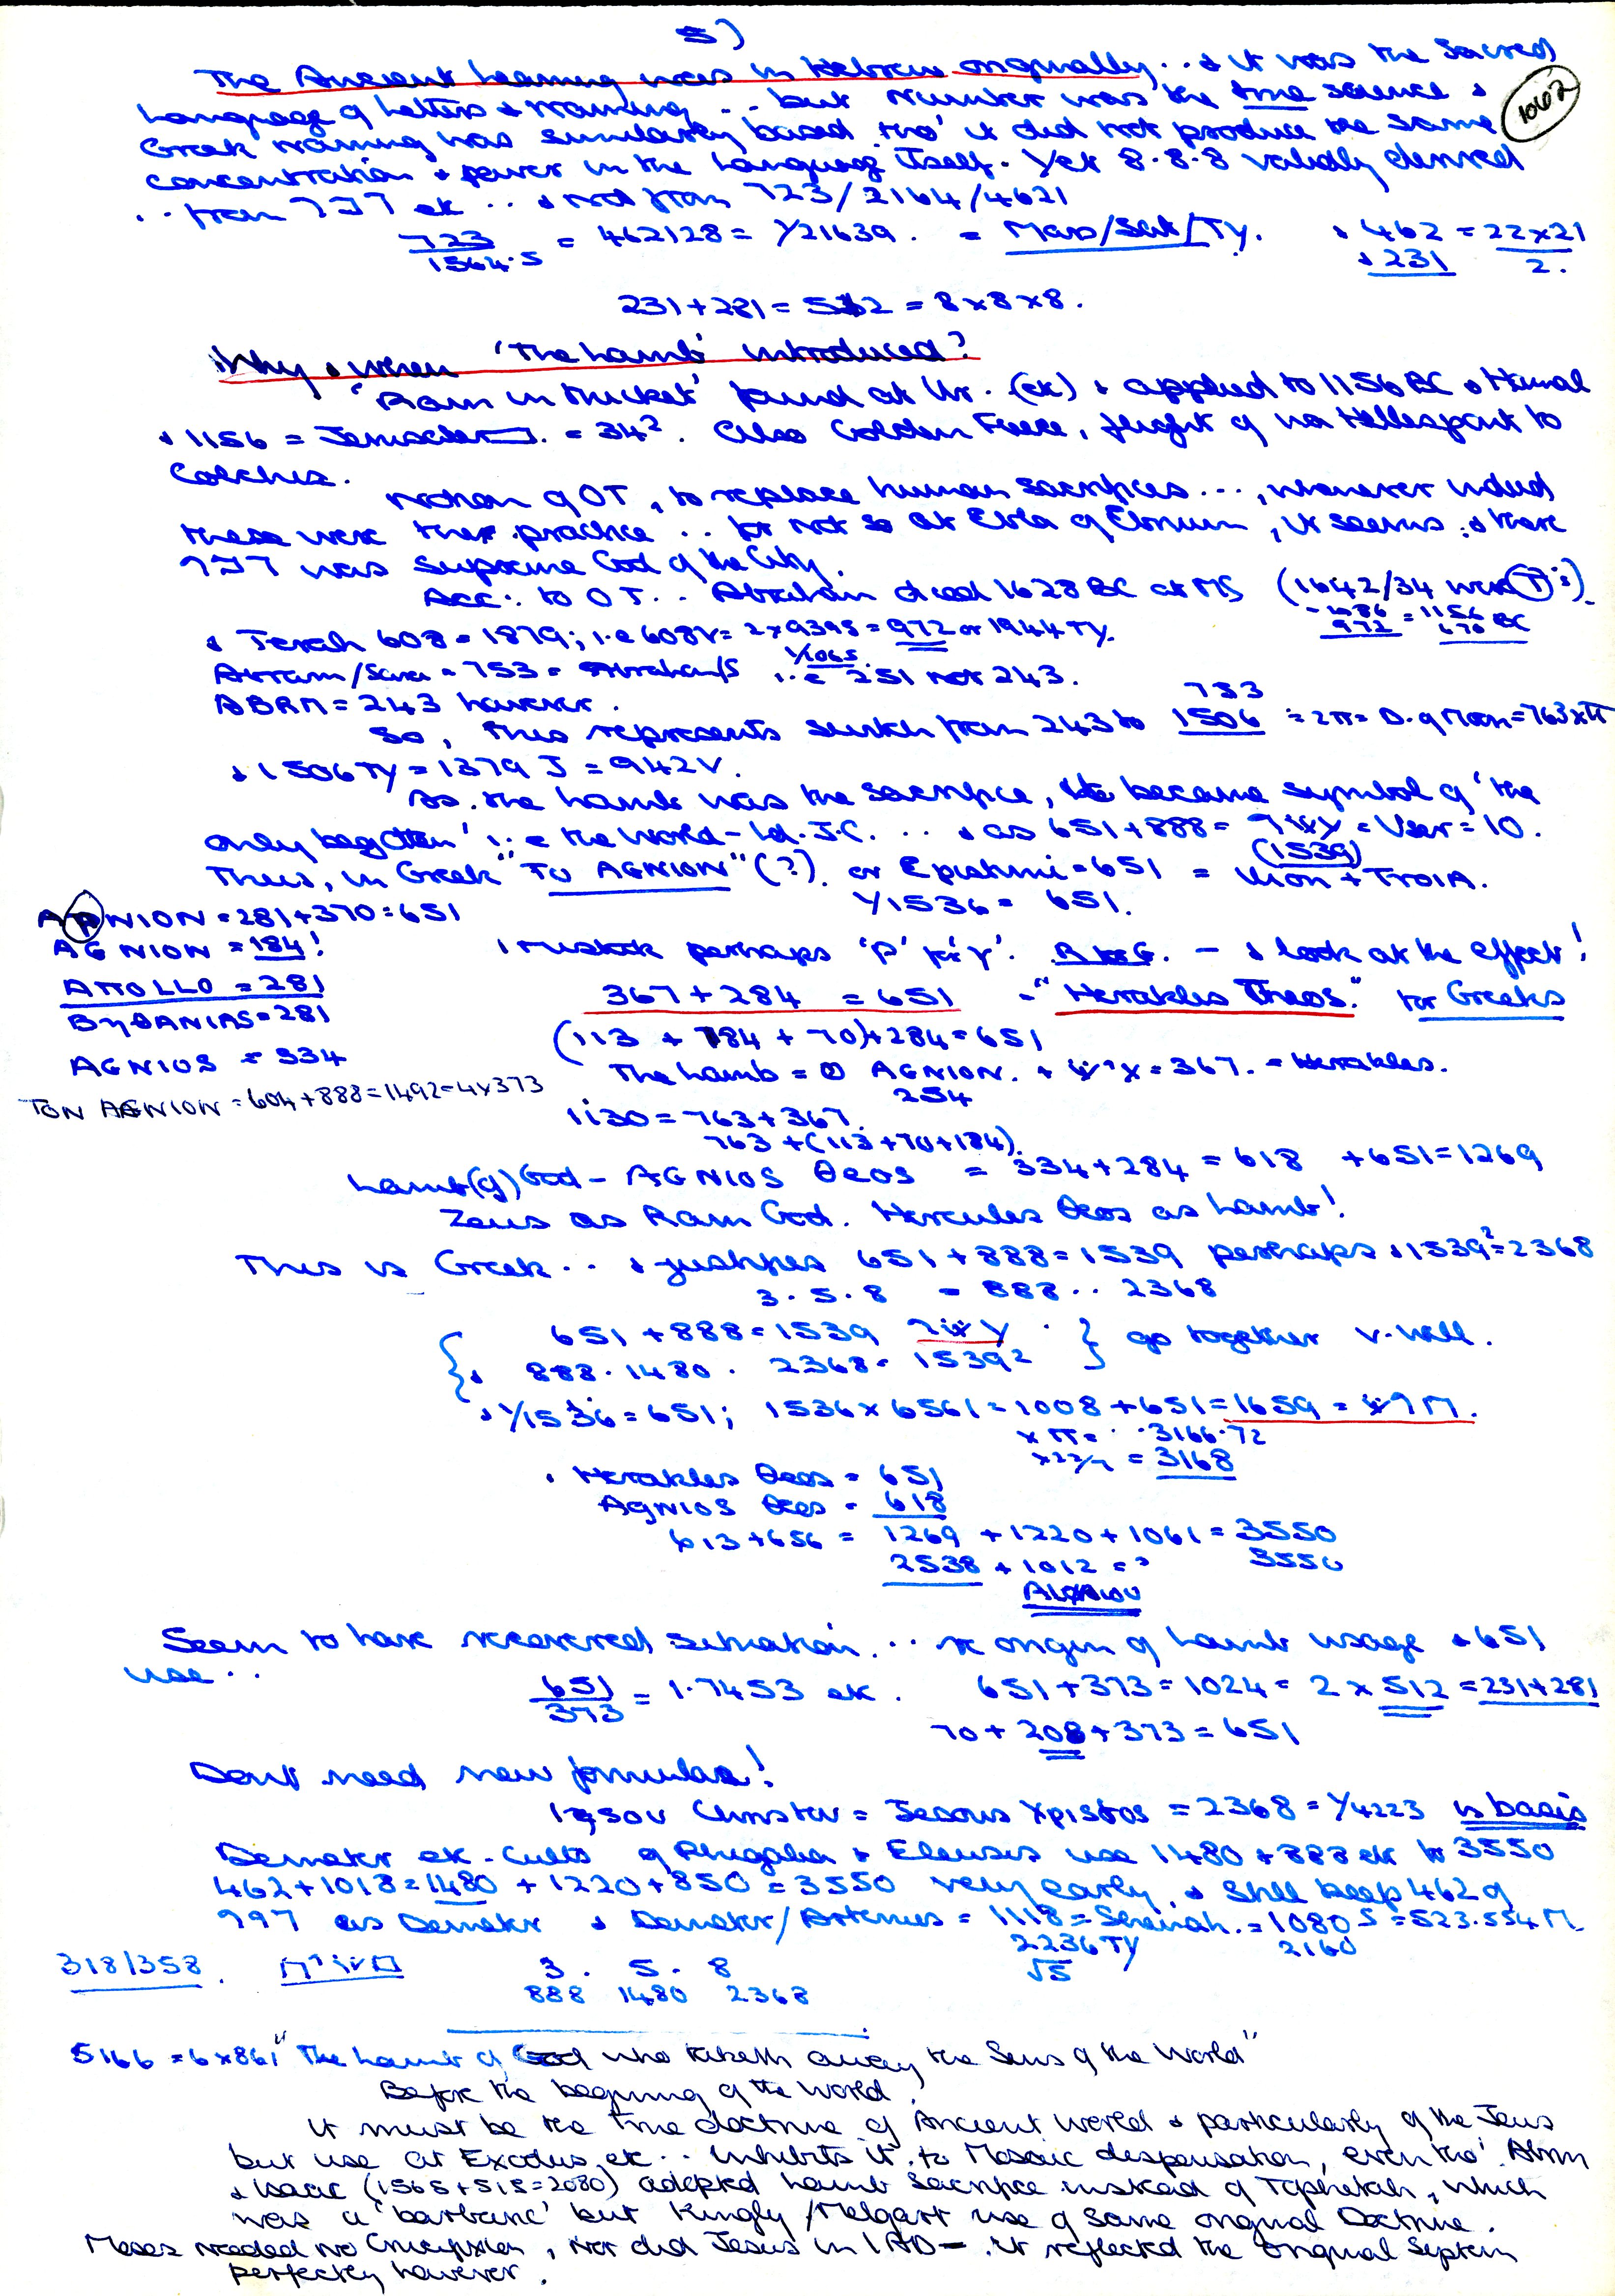 5)
The Ancient Learning was in Hebrew originally .. & it was the Sacred
Language of Letters & Naming .. but Number was the true science &
1062
Greek naming was similarly based tho' it did not produce the same
concentration & power in the Language itself. Yet 8.8.8 validly derived
.. from etc .. & not from 723/2164/4621
723/1564.5 = 462128 = Y21639. = Mars/Sat/Ty. & 462 = 22×21
& 231 2.
231+281 = 512 = 8×8×8.
Why & when 'The Lamb' introduced?
'Ram in thicket' found at Ur. (etc) & applied to 1156 BC &
& 1156 = Jerusalem = 34². Also Golden Fleece, flight of via Hellespont to
Colchis.
Notion of OT, to replace human sacrifices ..., whenever indeed
these were the practice .. for not so at Ebla of Ebrium, it seems: & there
was Supreme God of the City.
Acc: to OT .. Abraham died 1628 BC at MS (1642/34
972 = 1156 BC
& Terah 608 = 1879; i.e 608V = 2×939S = 972 or 1944 TY.
Abram/Sara = 753 = Abraham/S i.e 251 not 243.
ABRM = 243 however.
753
So, this represents switch from 243 to 1506 = 2π = D. of Moon = 763×π
& 1506 TY = 1379 J = 942V.
As the Lamb was the sacrifice, it became symbol of 'the
only begotten' i.e the World - Ld. J.C. ... & as 651+888 = = User = 10.
(1539)
Thus, in Greek "TO AGNION" (?) or Epistimi = 651 = Ilion + TROIA.
Y1536 = 651.
APNION = 281+370 = 651
AGNION = 184!
I mistook perhaps 'P' for 'γ'. R to G. - & look at the effect!
APOLLO = 281
367 + 284 = 651 = "Herakles Theos." for Greeks
BYΘANIAS = 281
(113 + 184 + 70)+284 = 651
AGNIOS = 334
The Lamb = O AGNION. + = 367. = Herakles.
254
TON AGNION = 604+888=1492=4×373
1130 = 763+367.
763 + (113+70+184).
Lamb (of) God - AGNIOS Θeos = 334+284 = 618 +651=1269
Zeus as Ram God. Hercules Θeos as Lamb!
This is Greek .. & justifies 651+888=1539 perhaps & 1539²=2368
3 . 5 . 8 = 888 .. 2368
651 + 888 = 1539 . } go together v. well.
& 888 . 1480 . 2368 = 1539²
& Y1536 = 651; 1536 × 6561 = 1008 + 651 = 1659 =
× π = .. 3166.72
×22/7 = 3168
. Herakles Θeos = 651
AGNIOS Θeos = 618
613+656 = 1269 + 1220 + 1061 = 3550
2538 + 1012 = 3550
Seem to have recovered situation .. re origin of Lamb usage & 651
use ..
651/373 = 1.7453 etc. 651+373=1024 = 2 × 512 = 231+281
70 + 208 + 373 = 651
Don't need new formulae!
Iησου Christou = Jesous Χpistos = 2368 = Y4223 is basis
Demeter etc. Cults of Phigalia & Eleusis use 1480 + 888 etc to 3550
462+1018=1480 + 1220+850=3550 very early. & Still keep 462 of
as Demeter & Demeter/Artemis = 1118 = = 1080 S = 523.554 M
2236 TY 2160
√5
318/358.
3 . 5 . 8
888 1480 2368
5166 = 6×861 "The Lamb of God who taketh away the Sins of the World"
Before the beginning of the World.
It must be the true doctrine of Ancient World & particularly of the Jews
but use at Exodus etc .. inhibits it to Mosaic dispensation, even tho' Abrm
& Isaac (1565+515=2080) adopted Lamb Sacrifice instead of Tophetah, which
was a 'barbaric' but Kingly/Melqart use of same original Doctrine.
Moses needed no Crucifixion, nor did Jesus in 1AD - . It reflected the original System
perfectly however.